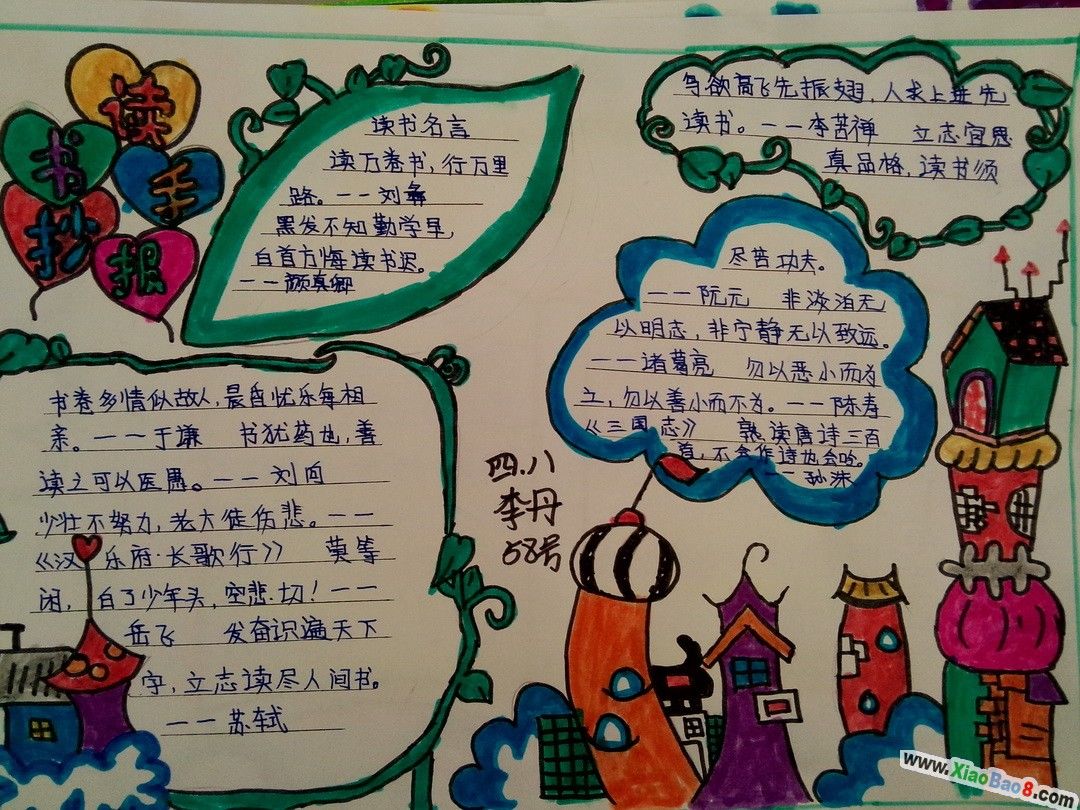 读
书手
抄报
读书名言
读万卷书，行万里
路。——刘彝
黑发不知勤学早，
白首方悔读书迟。
——颜真卿
鸟欲高飞先振翅，人求上进先
读书。——李苦禅 立志宜思
真品格，读书须
尽苦功夫。
——阮元 非淡泊无
以明志，非宁静无以致远。
——诸葛亮 勿以恶小而为
之，勿以善小而不为。——陈寿
《三国志》 熟读唐诗三百
首，不会作诗也会吟。
—孙洙
书卷多情似故人，晨昏忧乐每相
亲。——于谦 书犹药也，善
读之可以医愚。——刘向
少壮不努力，老大徒伤悲。——
《汉乐府·长歌行》 莫等
闲，白了少年头，空悲切！——
岳飞 发奋识遍天下
字，立志读尽人间书。
——苏轼
四.八
李丹
58号
www.XiaoBao8.com